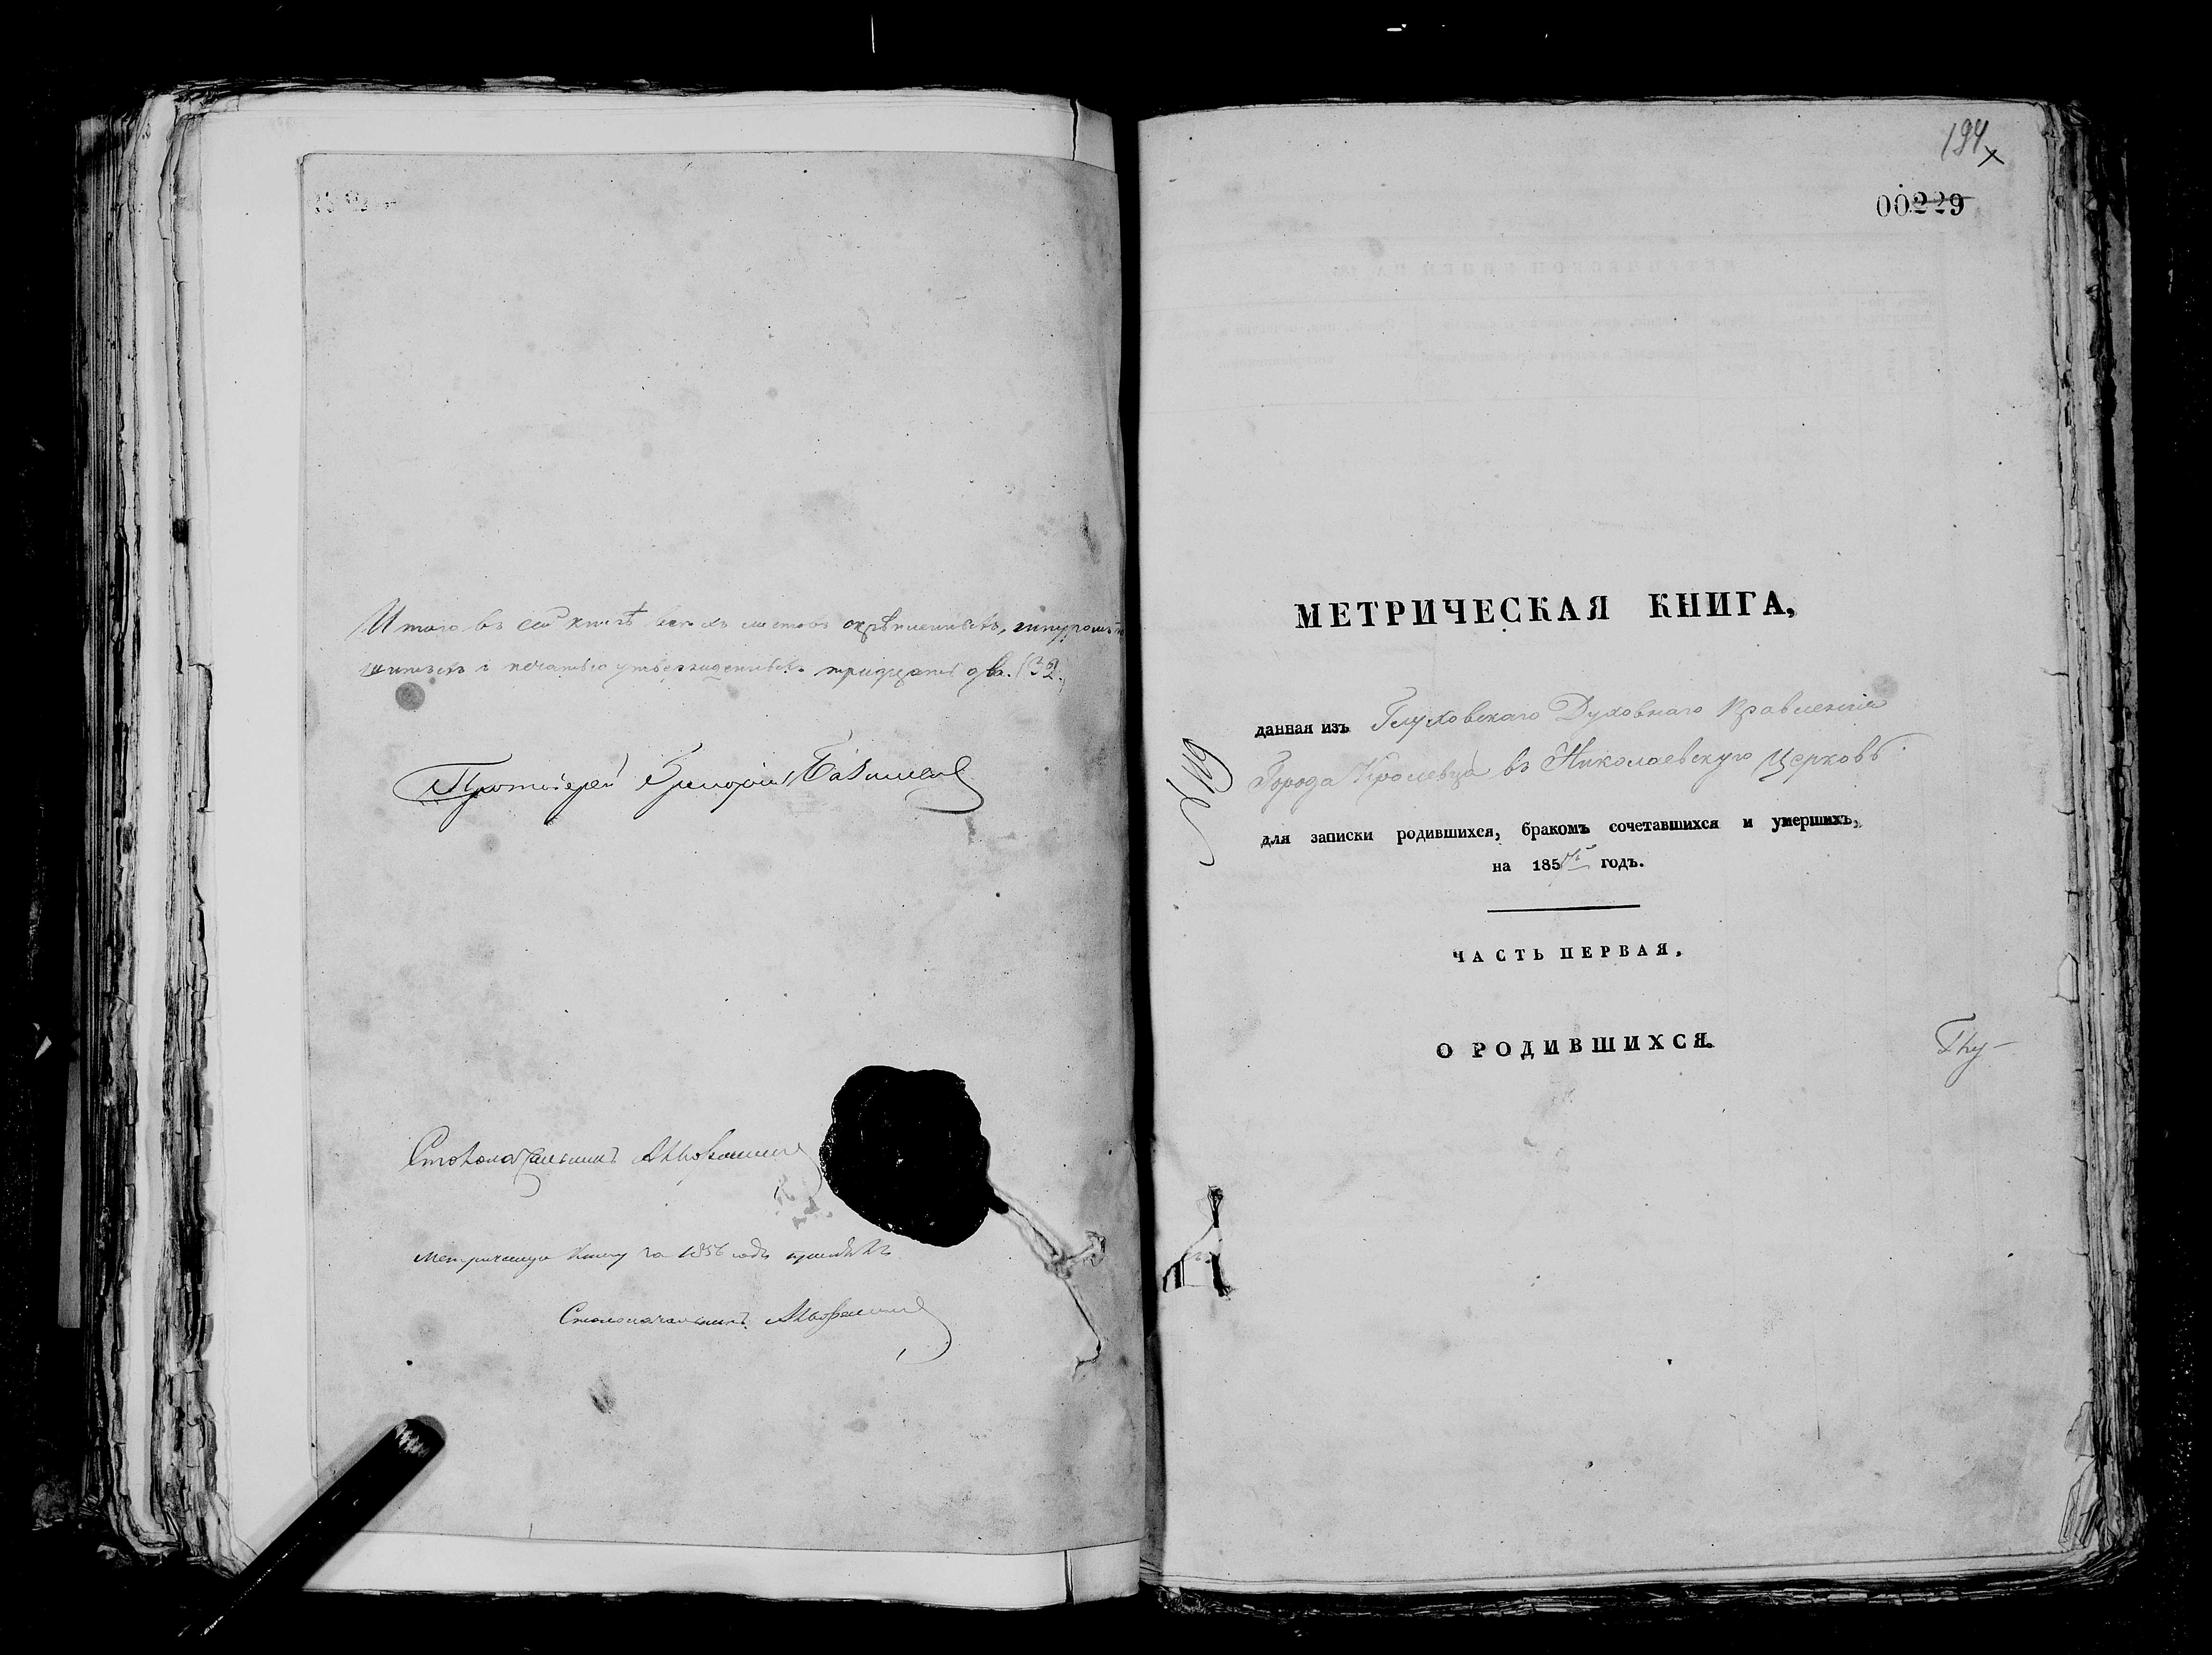 Итого въ сей книгѣ всѣхъ листовъ скрѣпленныхъ, шнуромъ
шитыхъ и печатью утвержденныхъ тридцать два. (32.)
Протоіерей Григорій
Столоначальникъ
Метрическую книгу за 1856 годъ
Столоначальникъ
194
00229
МЕТРИЧЕСКАЯ КНИГА,
данная изъ Глуховскаго Духовнаго Правленія
Города Кролевца въ Николаевскую Церковь
для записки родившихся, бракомъ сочетавшихся и умершихъ,
на 185 годъ.
ЧАСТЬ ПЕРВАЯ.
О РОДИВШИХСЯ.